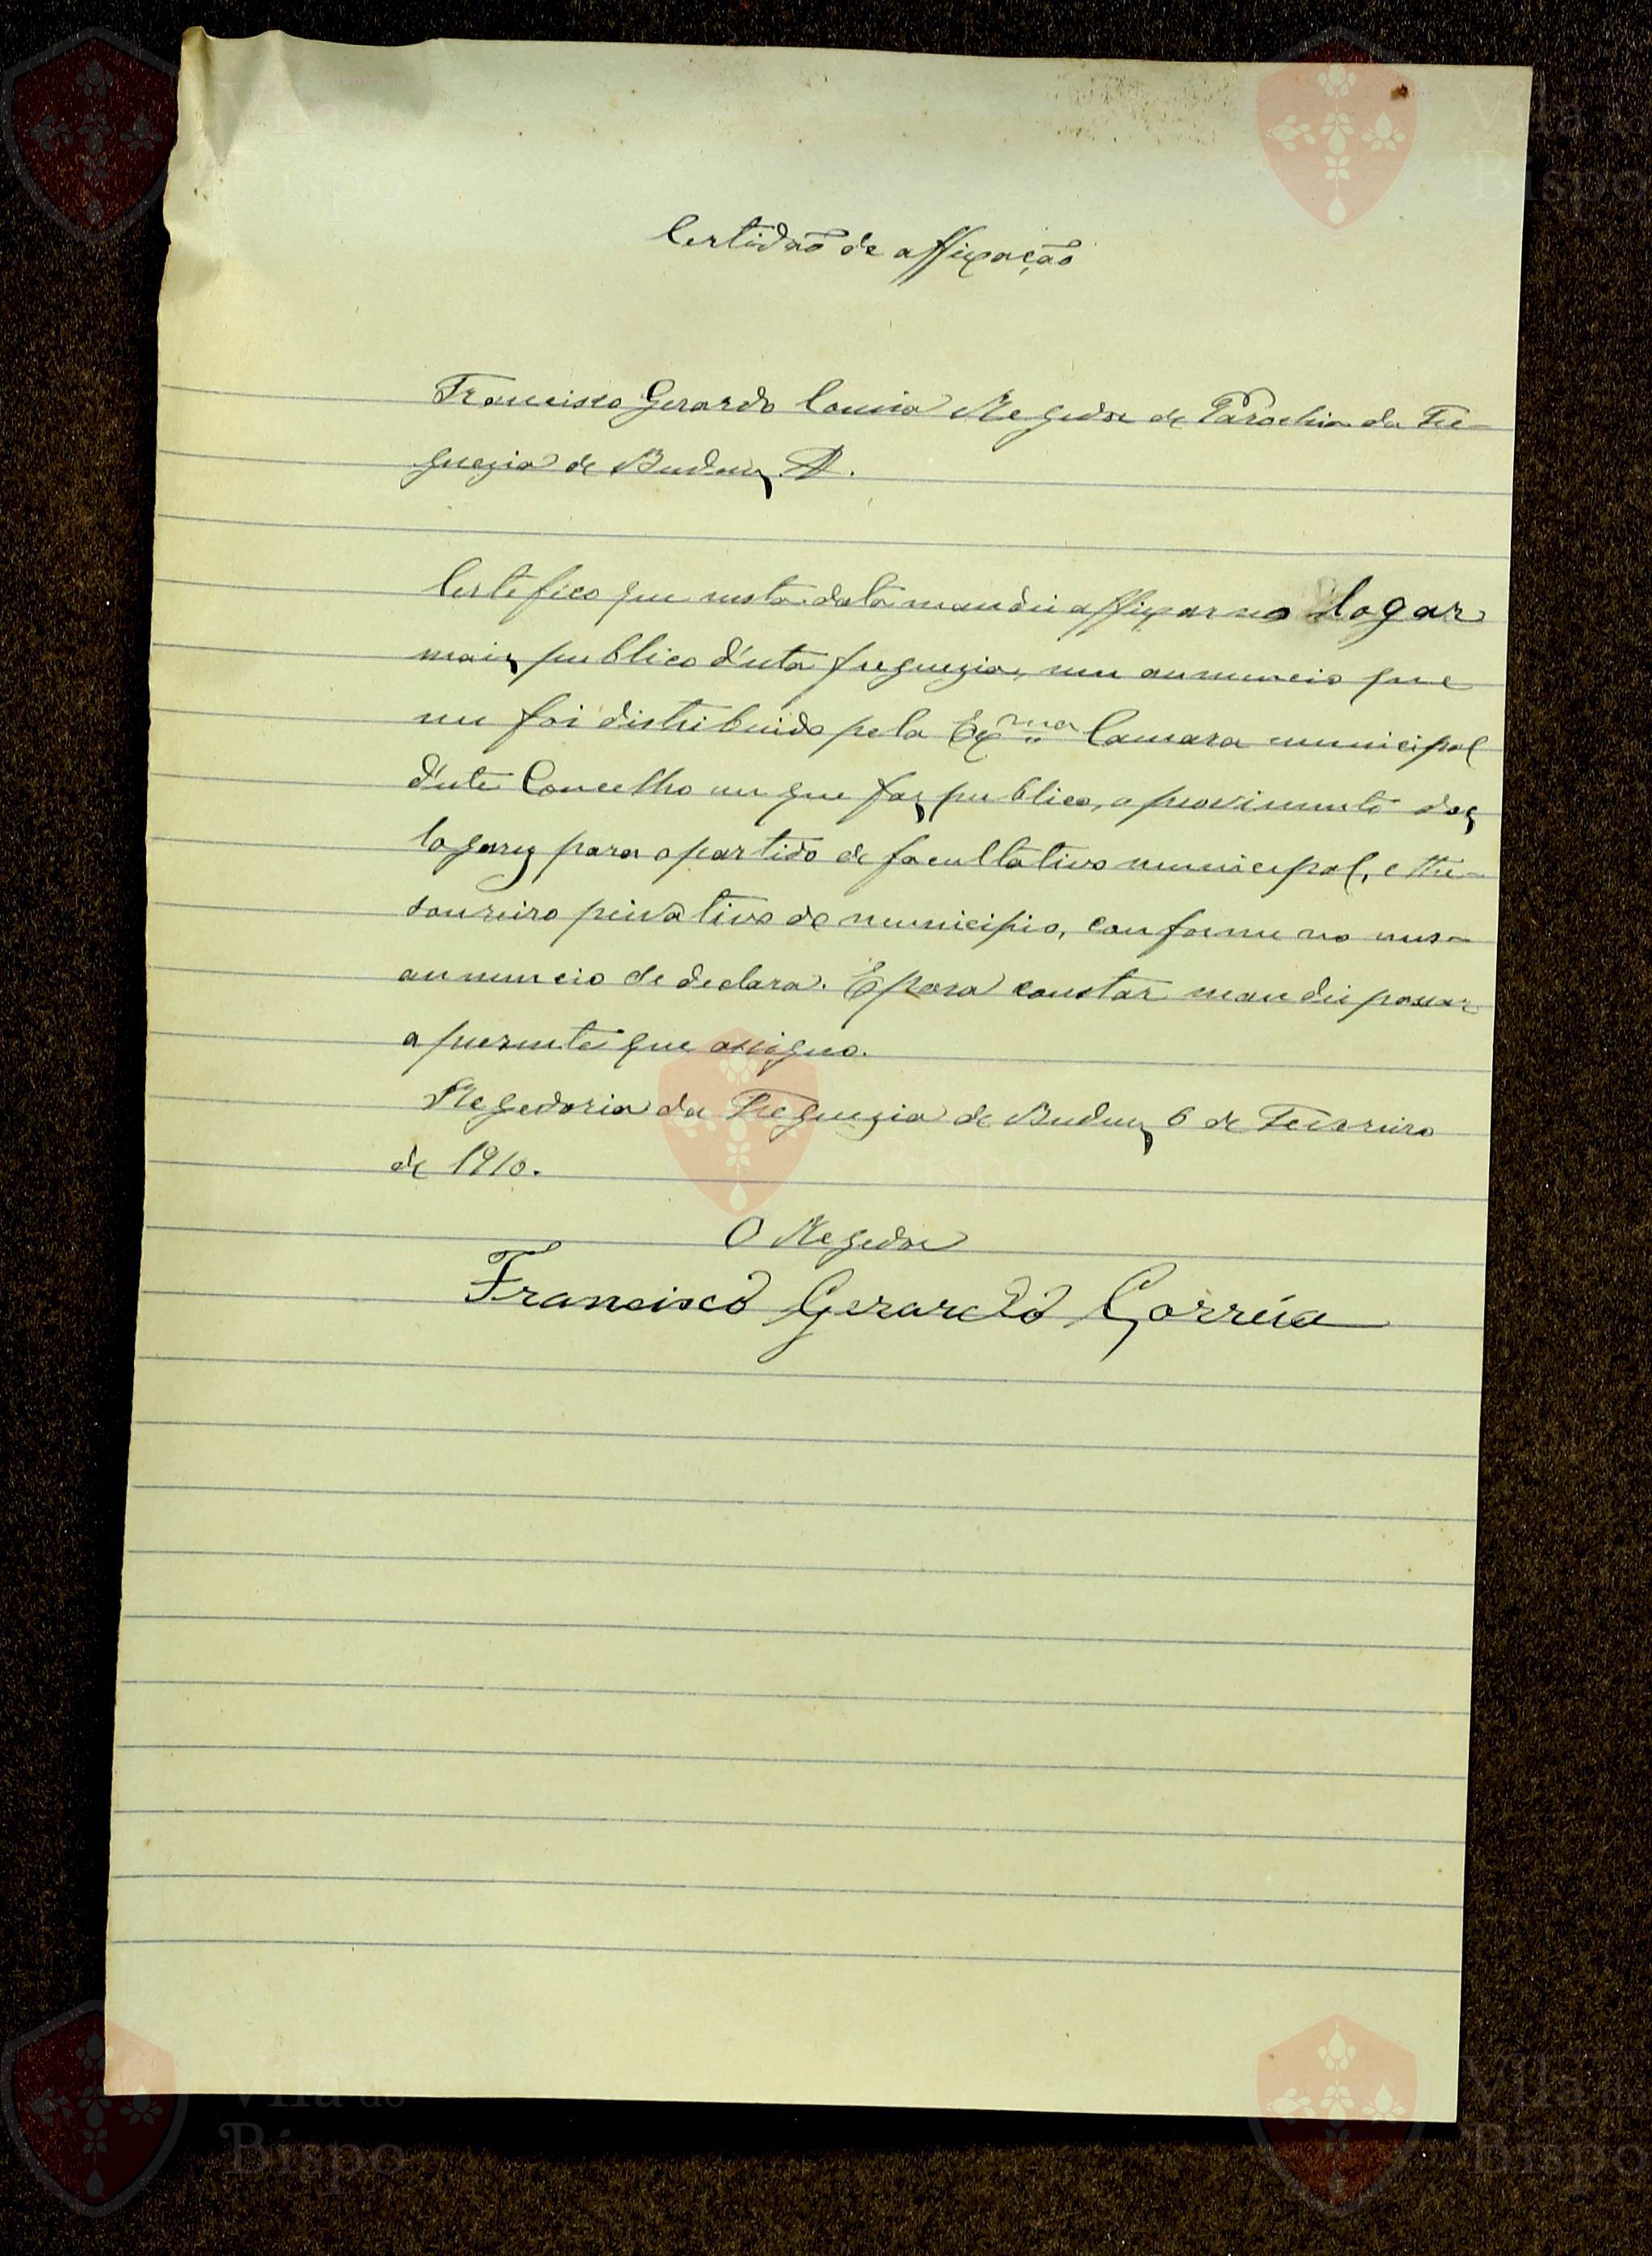 Certidão de affixação
Francisco Gerardo Correia Regedor de Parochia da Fre-
guezia de Budens, &.
Certefico que nesta data mandei affixar no logar
mais publico d'esta freguezia, um annuncio que
me foi distribuido pela Exma Camara municipal
d'este Concelho em que faz publico, o provimento dos
logares para o partido de facultativo municipal, e the-
soureiro privativo do municipio, conforme no mes-
annuncio se declara. E para constar mandei passar
a presente que assigno.
Regedoria da Freguezia de Budens 6 de Fevereiro
de 1910.
O Regedor
Francisco Gerardo Corrêia
Vila do
Bispo